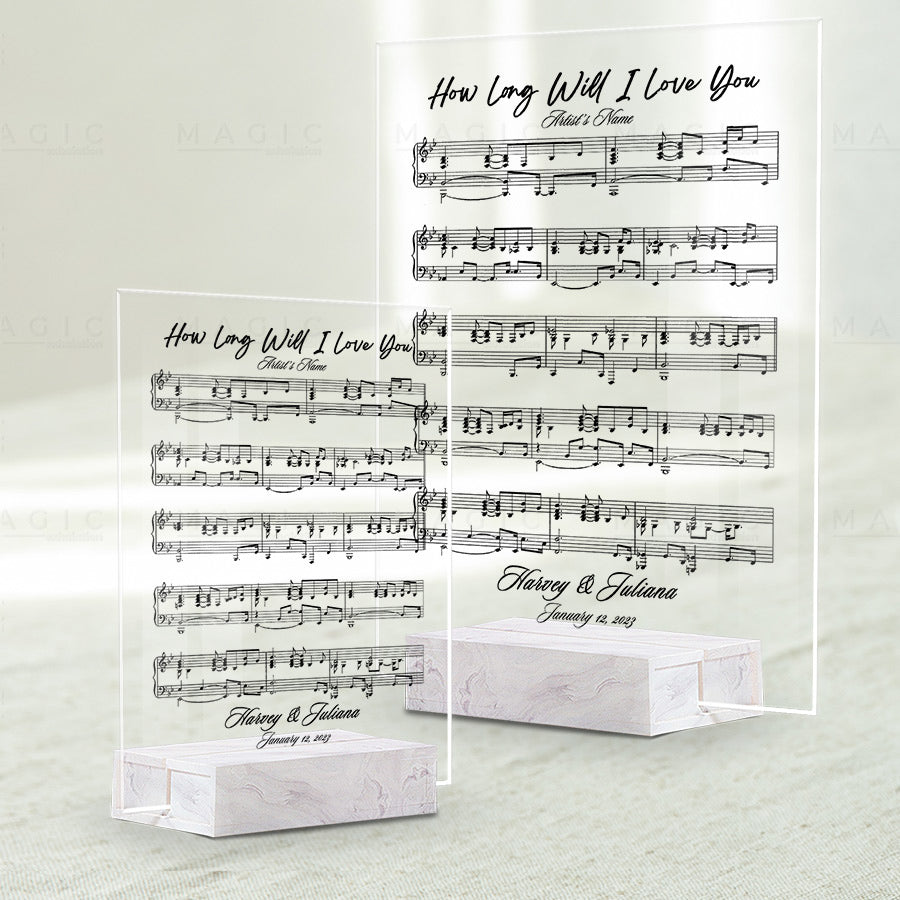 MAGIC
MAGIC
MAGIC
MAGIC
How Long Will I Love You
Artist's Name
Harvey & Juliana
January 12, 2023
How Long Will I Love You
Artist's Name
Harvey & Juliana
January 12, 2023